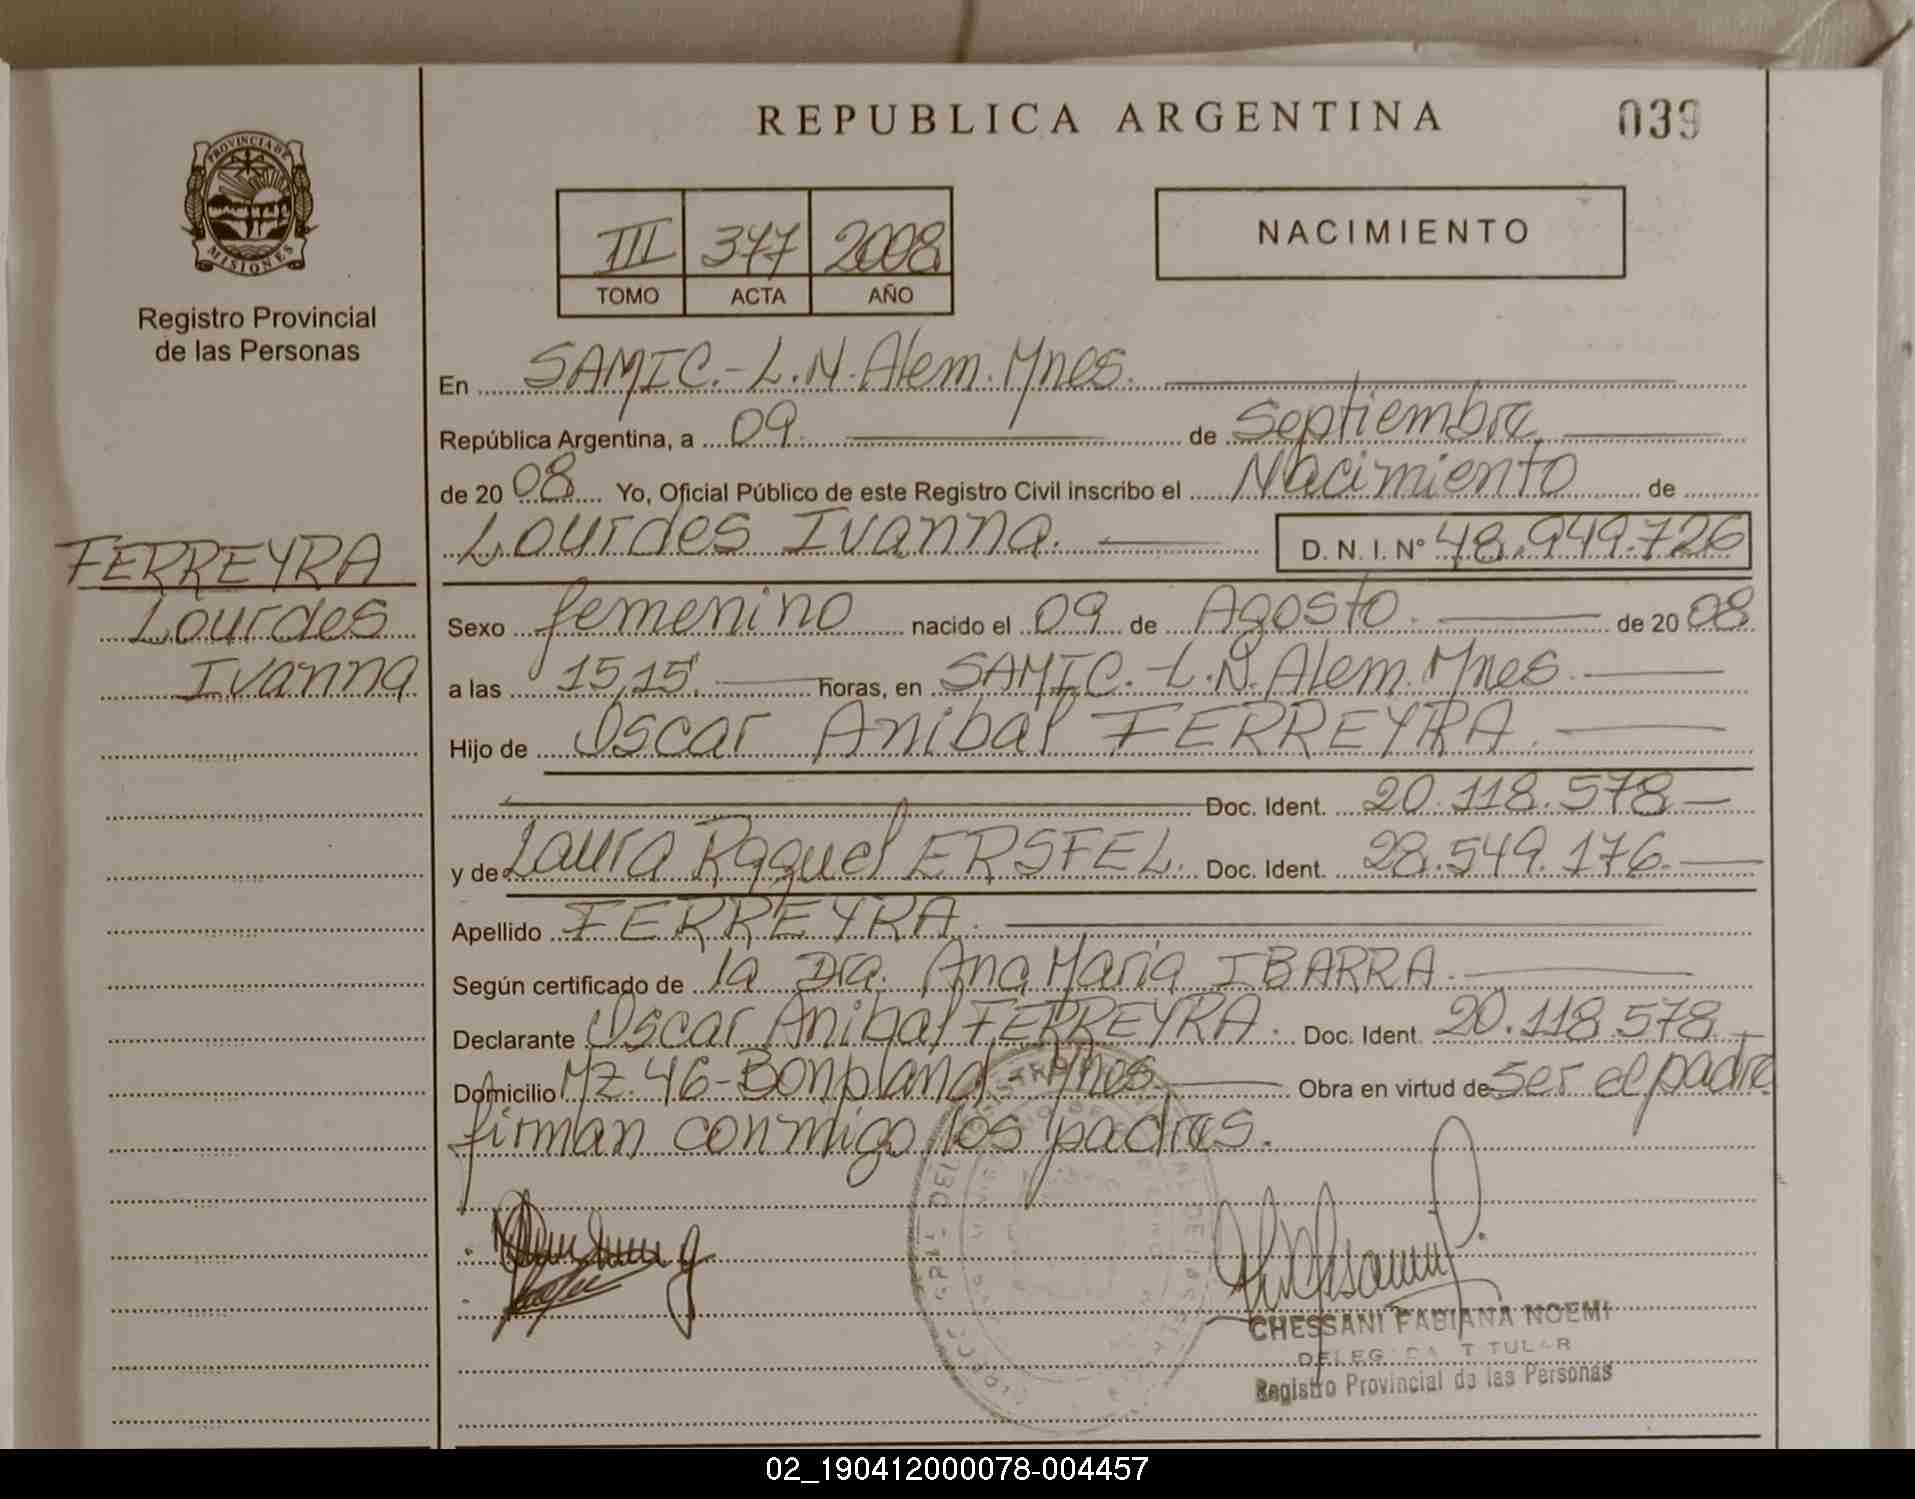 REPUBLICA ARGENTINA
039
PROVINCIA DE
MISIONES
Registro Provincial
de las Personas
III 347 2008
TOMO ACTA AÑO
NACIMIENTO
En SAMIC.-L.N.Alem.Mnes.
República Argentina, a 09 de Septiembre
de 2008 Yo, Oficial Público de este Registro Civil inscribo el Nacimiento de
Lourdes Ivanna. D. N. I. Nº 48.949.726
FERREYRA
Lourdes
Ivanna
Sexo femenino nacido el 09 de Agosto. de 2008
a las 15,15. horas, en SAMIC.-L.N.Alem.Mnes
Hijo de Oscar Anibal FERREYRA.
Doc. Ident. 20.118.578
y de Laura Raquel ERSFEL. Doc. Ident. 28.549.176.
Apellido FERREYRA.
Según certificado de la Dra. Ana Maria IBARRA.
Declarante Oscar Anibal FERREYRA. Doc. Ident. 20.118.578
Domicilio Mz.46-Bonpland.-Mnes. Obra en virtud de ser el padre
firman conmigo los padres.
CHESSANI FABIANA NOEMI
DELEGADA TITULAR
Registro Provincial de las Personas
02_190412000078-004457